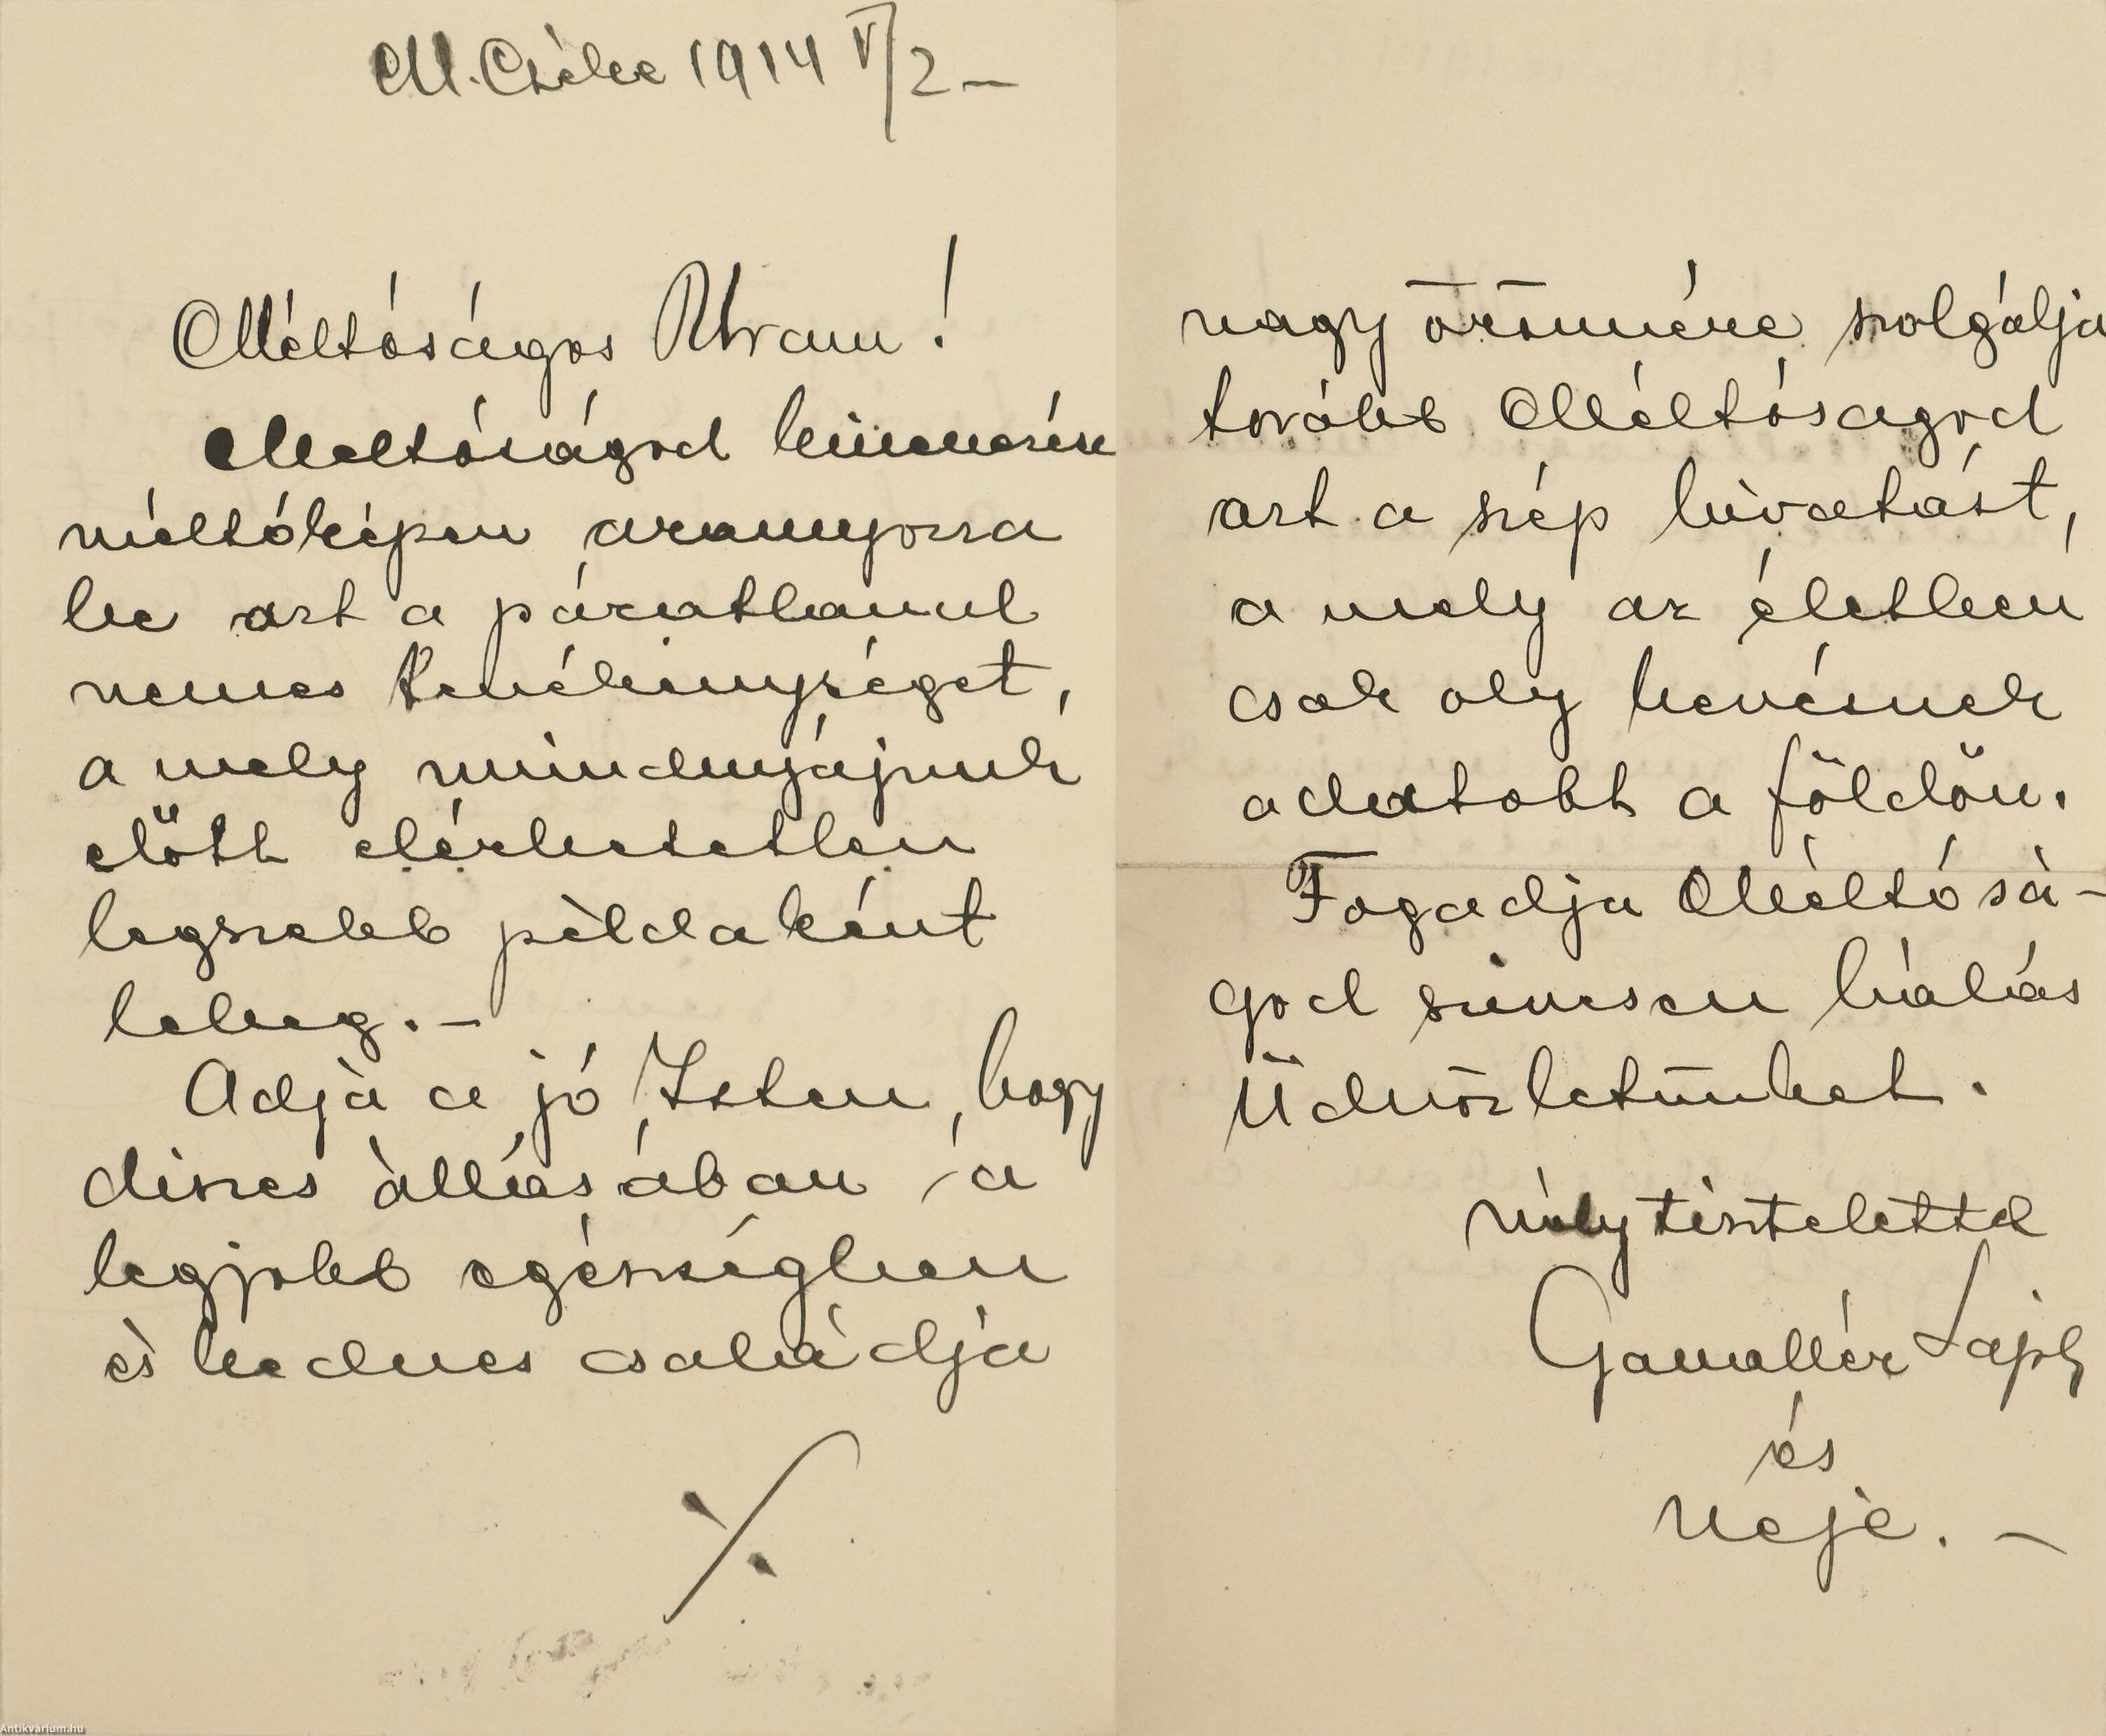 M. Cséke 1914 V/2 —
Méltóságos Uram!
Méltóságod kitüntetése
méltóképen aranyozza
be azt a páratlanul
nemes tevékenységet,
a mely mindnyájunk
előtt elérhetetlen
legszebb példaként
lebeg. —
Adja a jó Isten, hogy
díszes állásában, a
legjobb egészségben
és kedves családja
nagy örömére szolgálja
tovább Méltóságod
azt a szép hivatást,
a mely az életben
csak oly kevésnek
adatott a földön.
Fogadja Méltósá-
god szívesen hálás
Üdvözletünket.
mély tisztelettel
Gamallér Lajos
és
neje. —
Antikvárium.hu